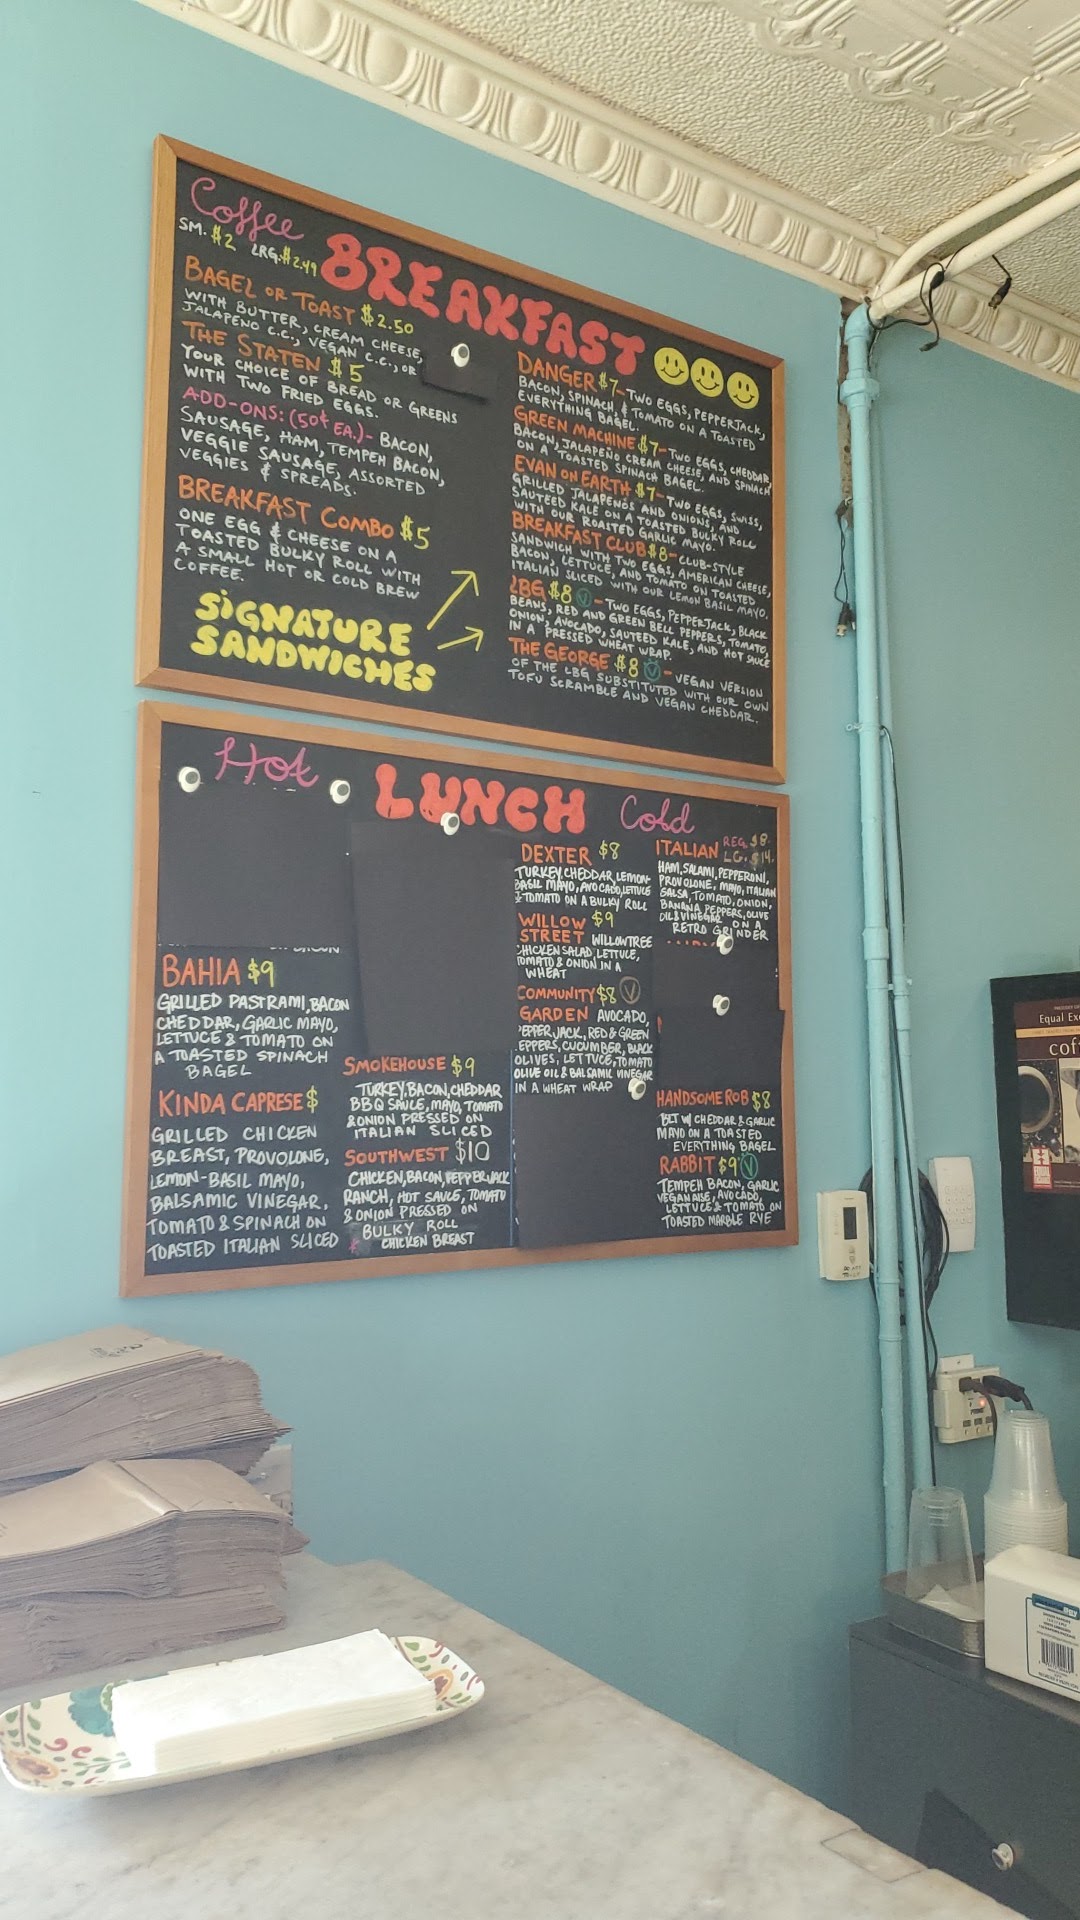 Coffee
SM. $2 LRG. $2.49
BREAKFAST
BAGEL OR TOAST $2.50
WITH BUTTER, CREAM CHEESE,
JALAPEÑO C.C., VEGAN C.C., OR
THE STATEN $5
YOUR CHOICE OF BREAD OR GREENS
WITH TWO FRIED EGGS.
ADD-ONS: (50¢ EA.)- BACON,
SAUSAGE, HAM, TEMPEH BACON,
VEGGIE SAUSAGE, ASSORTED
VEGGIES & SPREADS.
BREAKFAST COMBO $5
ONE EGG & CHEESE ON A
TOASTED BULKY ROLL WITH
A SMALL HOT OR COLD BREW
COFFEE.
SIGNATURE
SANDWICHES
DANGER $7-TWO EGGS, PEPPERJACK,
BACON, SPINACH, & TOMATO ON A TOASTED
EVERYTHING BAGEL.
GREEN MACHINE $7-TWO EGGS, CHEDDAR,
BACON, JALAPEÑO CREAM CHEESE, AND SPINACH
ON A TOASTED SPINACH BAGEL.
EVAN ON EARTH $7-TWO EGGS, SWISS,
GRILLED JALAPEÑOS AND ONIONS, AND
SAUTEED KALE ON A TOASTED BULKY ROLL
WITH OUR ROASTED GARLIC MAYO.
BREAKFAST CLUB $8-CLUB-STYLE
SANDWICH WITH TWO EGGS, AMERICAN CHEESE,
BACON, LETTUCE, AND TOMATO ON TOASTED
ITALIAN SLICED WITH OUR LEMON BASIL MAYO.
LBG $8 V-TWO EGGS, PEPPERJACK, BLACK
BEANS, RED AND GREEN BELL PEPPERS, TOMATO,
ONION, AVOCADO, SAUTEED KALE, AND HOT SAUCE
IN A PRESSED WHEAT WRAP.
THE GEORGE $8 V-VEGAN VERSION
OF THE LBG SUBSTITUTED WITH OUR OWN
TOFU SCRAMBLE AND VEGAN CHEDDAR.
LUNCH
Hot
BAHIA $9
GRILLED PASTRAMI, BACON
CHEDDAR, GARLIC MAYO,
LETTUCE & TOMATO ON
A TOASTED SPINACH
BAGEL
KINDA CAPRESE $
GRILLED CHICKEN
BREAST, PROVOLONE,
LEMON-BASIL MAYO,
BALSAMIC VINEGAR,
TOMATO & SPINACH ON
TOASTED ITALIAN SLICED
SMOKEHOUSE $9
TURKEY, BACON, CHEDDAR
BBQ SAUCE, MAYO, TOMATO
& ONION PRESSED ON
ITALIAN SLICED
SOUTHWEST $10
CHICKEN, BACON, PEPPERJACK
RANCH, HOT SAUCE, TOMATO
& ONION PRESSED ON
BULKY ROLL
CHICKEN BREAST
Cold
DEXTER $8
TURKEY, CHEDDAR, LEMON-
BASIL MAYO, AVOCADO, LETTUCE
& TOMATO ON A BULKY ROLL
WILLOW $9
STREET WILLOWTREE
CHICKEN SALAD, LETTUCE,
TOMATO & ONION IN A
WHEAT
COMMUNITY $8 V
GARDEN AVOCADO,
PEPPER JACK, RED & GREEN
PEPPERS, CUCUMBER, BLACK
OLIVES, LETTUCE, TOMATO
OLIVE OIL & BALSAMIC VINEGAR
IN A WHEAT WRAP
ITALIAN REG. $8.
LG. $14.
HAM, SALAMI, PEPPERONI,
PROVOLONE, MAYO, ITALIAN
SALSA, TOMATO, ONION,
BANANA PEPPERS, OLIVE
OIL & VINEGAR ON A
RETRO GRINDER
HANDSOME ROB $8
BLT W/ CHEDDAR & GARLIC
MAYO ON A TOASTED
EVERYTHING BAGEL
RABBIT $9 V
TEMPEH BACON, GARLIC
VEGANAISE, AVOCADO,
LETTUCE & TOMATO ON
TOASTED MARBLE RYE
Equal Ex
cof